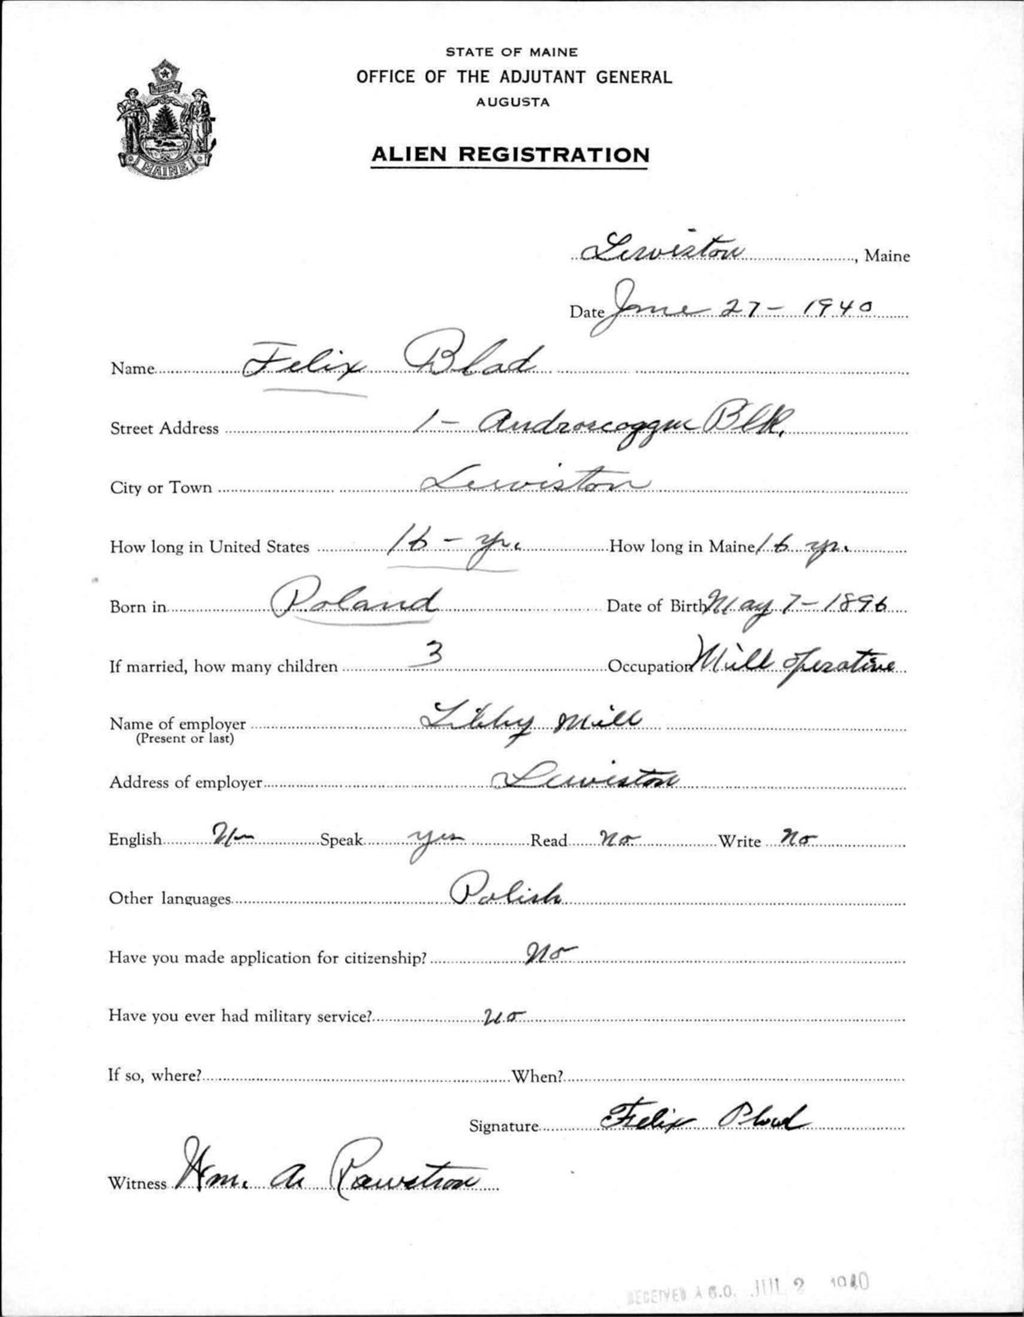 STATE OF MAINE
OFFICE OF THE ADJUTANT GENERAL
AUGUSTA
ALIEN REGISTRATION
MAINE
Lewiston, Maine
Date June 27 - 1940
Name Felix Blad
Street Address 1 - Androscoggin Blk.
City or Town Lewiston
How long in United States 16 - yr. How long in Maine 16 yr.
Born in Poland Date of Birth May 7 - 1896
If married, how many children 3 Occupation Mill operative
Name of employer Libby Mill
(Present or last)
Address of employer Lewiston
English Speak yes Read no Write no
Other languages Polish
Have you made application for citizenship? No
Have you ever had military service? no
If so, where? When?
Signature Felix Blad
Witness Wm. A. Rawstron
RECEIVED A.G.O. JUL 2 1940